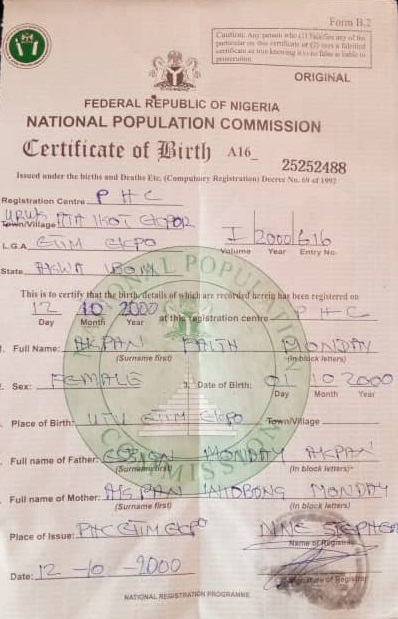 Form B.2
Caution: Any person who (1) Falsifies any of the
particular on this certificate or (2) uses a falsified
certificate as true knowing it to be false is liable to
prosecution.
ORIGINAL
FEDERAL REPUBLIC OF NIGERIA
NATIONAL POPULATION COMMISSION
Certificate of Birth A16_ 25252488
Issued under the births and Deaths Etc, (Compulsory Registration) Decree No. 69 of 1992
Registration Centre PHC
Town/Village IKOT EKPOR
L.G.A ETIM EKPO I 2000 616
Volume Year Entry No.
State AKWA IBOM
This is to certify that the birth details of which are recorded herein has been registered on
12 10 2000 at this registration centre PHC
Day Month Year
1. Full Name: AKPAN FAITH MONDAY
(Surname first) (In block letters)
2. Sex: FEMALE 3. Date of Birth: 01 10 2000
Day Month Year
Place of Birth: ETIM EKPO Town/Village
Full name of Father: MONDAY AKPAN
(Surname first) (In block letters)
Full name of Mother: AKPAN INIOBONG MONDAY
(Surname first) (In block letters)
Place of Issue: PHC ETIM EKPO
Name of Registrar
Date: 12-10-2000
Signature of Registrar
NATIONAL REGISTRATION PROGRAMME
NATIONAL POPULATION COMMISSION